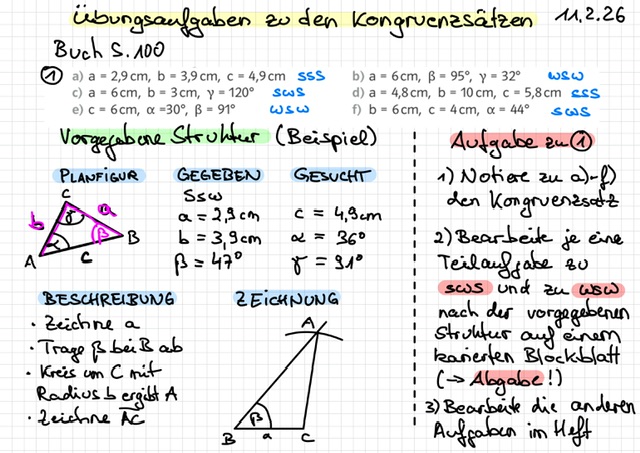 Übungsaufgaben zu den Kongruenzsätzen 11.2.26
Buch S. 100
① a) a = 2,9 cm, b = 3,9 cm, c = 4,9 cm SSS
b) a = 6 cm, β = 95°, γ = 32° WSW
c) a = 6 cm, b = 3 cm, γ = 120° SWS
d) a = 4,8 cm, b = 10 cm, c = 5,8 cm SSS
e) c = 6 cm, α = 30°, β = 91° WSW
f) b = 6 cm, c = 4 cm, α = 44° SWS
Vorgegebene Struktur (Beispiel)
PLANFIGUR
C
b
a
γ
α
β
A
c
B
GEGEBEN
SsW
a = 2,9 cm
b = 3,9 cm
β = 47°
GESUCHT
c = 4,9 cm
α = 36°
γ = 91°
BESCHREIBUNG
· Zeichne a
· Trage β bei B ab
· Kreis um C mit
Radius b ergibt A
· Zeichne AC
ZEICHNUNG
A
β
B
a
C
Aufgabe zu ①
1) Notiere zu a)-f)
den Kongruenzsatz
2) Bearbeite je eine
Teilaufgabe zu
SWS und zu WSW
nach der vorgegebenen
Struktur auf einem
karierten Blockblatt
(→ Abgabe!)
3) Bearbeite die anderen
Aufgaben im Heft